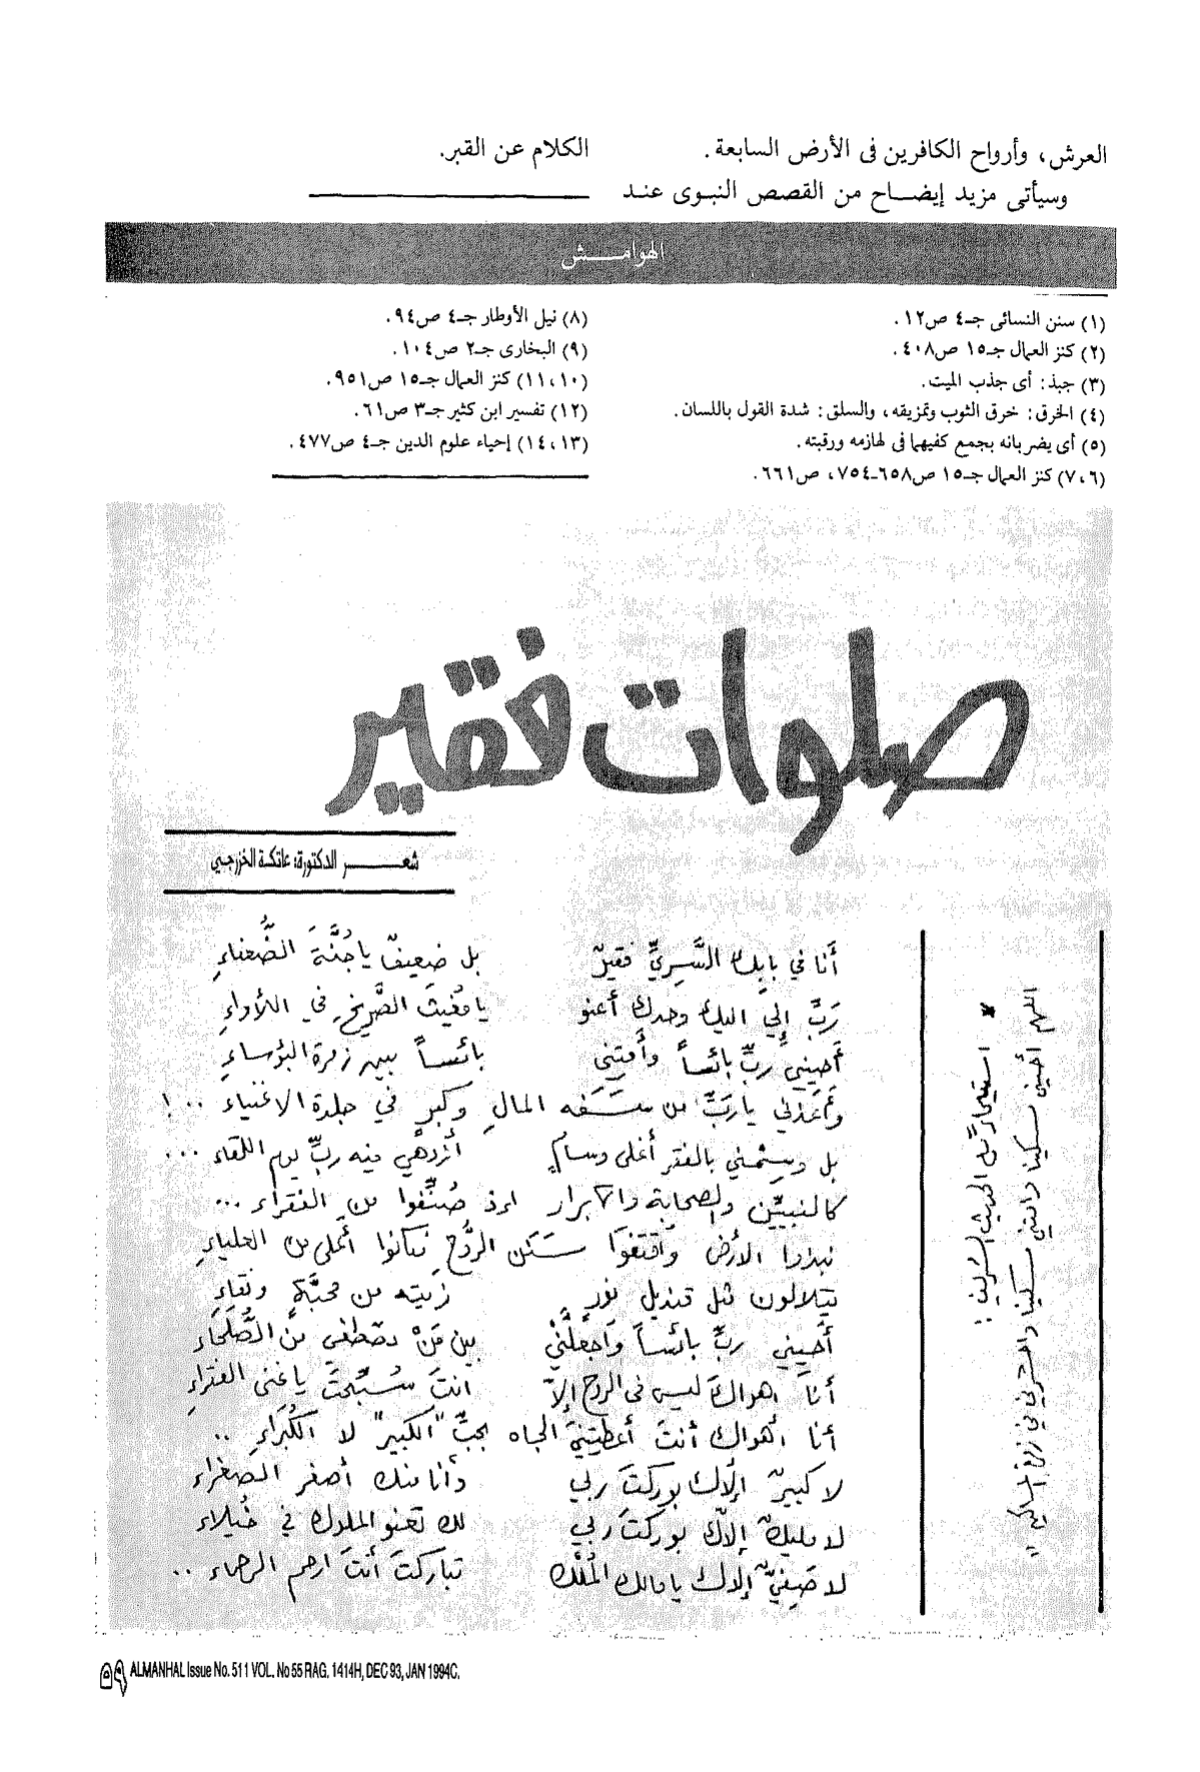 العرش، وأرواح الكافرين فى الأرض السابعة.
وسيأتى مزيد إيضـــاح من القصص النبـوى عنـد
الكلام عن القبر.
الهوامـــــش
(١) سنن النسائى جـ٤ ص١٢.
(٢) كنز العمال جـ١٥ ص٤٠٨.
(٣) جبذ: أى جذب الميت.
(٤) الخرق: خرق الثوب وتمزيقه، والسلق: شدة القول باللسان.
(٥) أى يضربانه بجمع كفيهما فى لهازمه ورقبته.
(٧،٦) كنز العمال جـ١٥ ص٦٥٨ـ٧٥٤، ص٦٦١.
(٨) نيل الأوطار جـ٤ ص٩٤.
(٩) البخارى جـ٢ ص١٠٤.
(١١،١٠) كنز العمال جـ١٥ ص٩٥١.
(١٢) تفسير ابن كثير جـ٣ ص٦١.
(١٤،١٣) إحياء علوم الدين جـ٤ ص٤٧٧.
صلوات فقير
شعــــــــر الدكتورة: عاتكة الخزرجي
* استيحاءً من الحديث الشريف:
اللهم أحيني مسكينا وأمتني مسكينا واحشرني في زمرة المساكين "
أَنا في بابِكَ السَّرِيِّ فقيرٌ بل ضعيفٌ ياجُنَّةَ الضُّعفاءِ
رَبِّ إِنّي اليك وحدك أعنو يا مُغيثَ الصَّريخِ في اللأواءِ
أَحيِني ربِّ بائساً وأَمِتني بائساً بين زمرة البؤساءِ
وأَعِذني ياربِّ من سَفَه المالِ وكبرٍ في جلدة الاغنياء ..!
بل وسِمْني بالفقر أغلى وسامٍ أزدهي فيه ربِّ يوم اللقاء ...
كالنبيّين والصحابة والابرار اذ صُنِّفوا من الفقراء ...
نبذوا الأرضَ واقتفوا سَنَن الرُّوحِ فكانوا أعلى من العلياءِ
يتلألون مثل قنديل نورٍ زيته من محبَّةٍ ونقاءِ
أَحيِني ربِّ بائساً واجعلَنّي بين مَنْ تصطفي من الصُّلَحاءِ
أنا أهواكَ ليس في الروح إلاّ انتَ سُبِّحتَ ياغنى الفقراءِ
أنا أهواك أنتَ أعطيتني الجاه بحبِّ "الكبير" لا الكُبَراءِ ..
لا كبيرٌ إلّاك بوركتَ ربي وأنا منك أصغر الصغراء
لا مليكٌ إلاّك بوركتَ ربي لك تعنو الملوك في خُيلاء
لا حَفِيٌّ إلاك يا مالك المُلْك تباركتَ أنتَ ارحم الرحماء ..
٥٩ ALMANHAL Issue No. 511 VOL. No 55 RAG. 1414H, DEC 93, JAN 1994C.